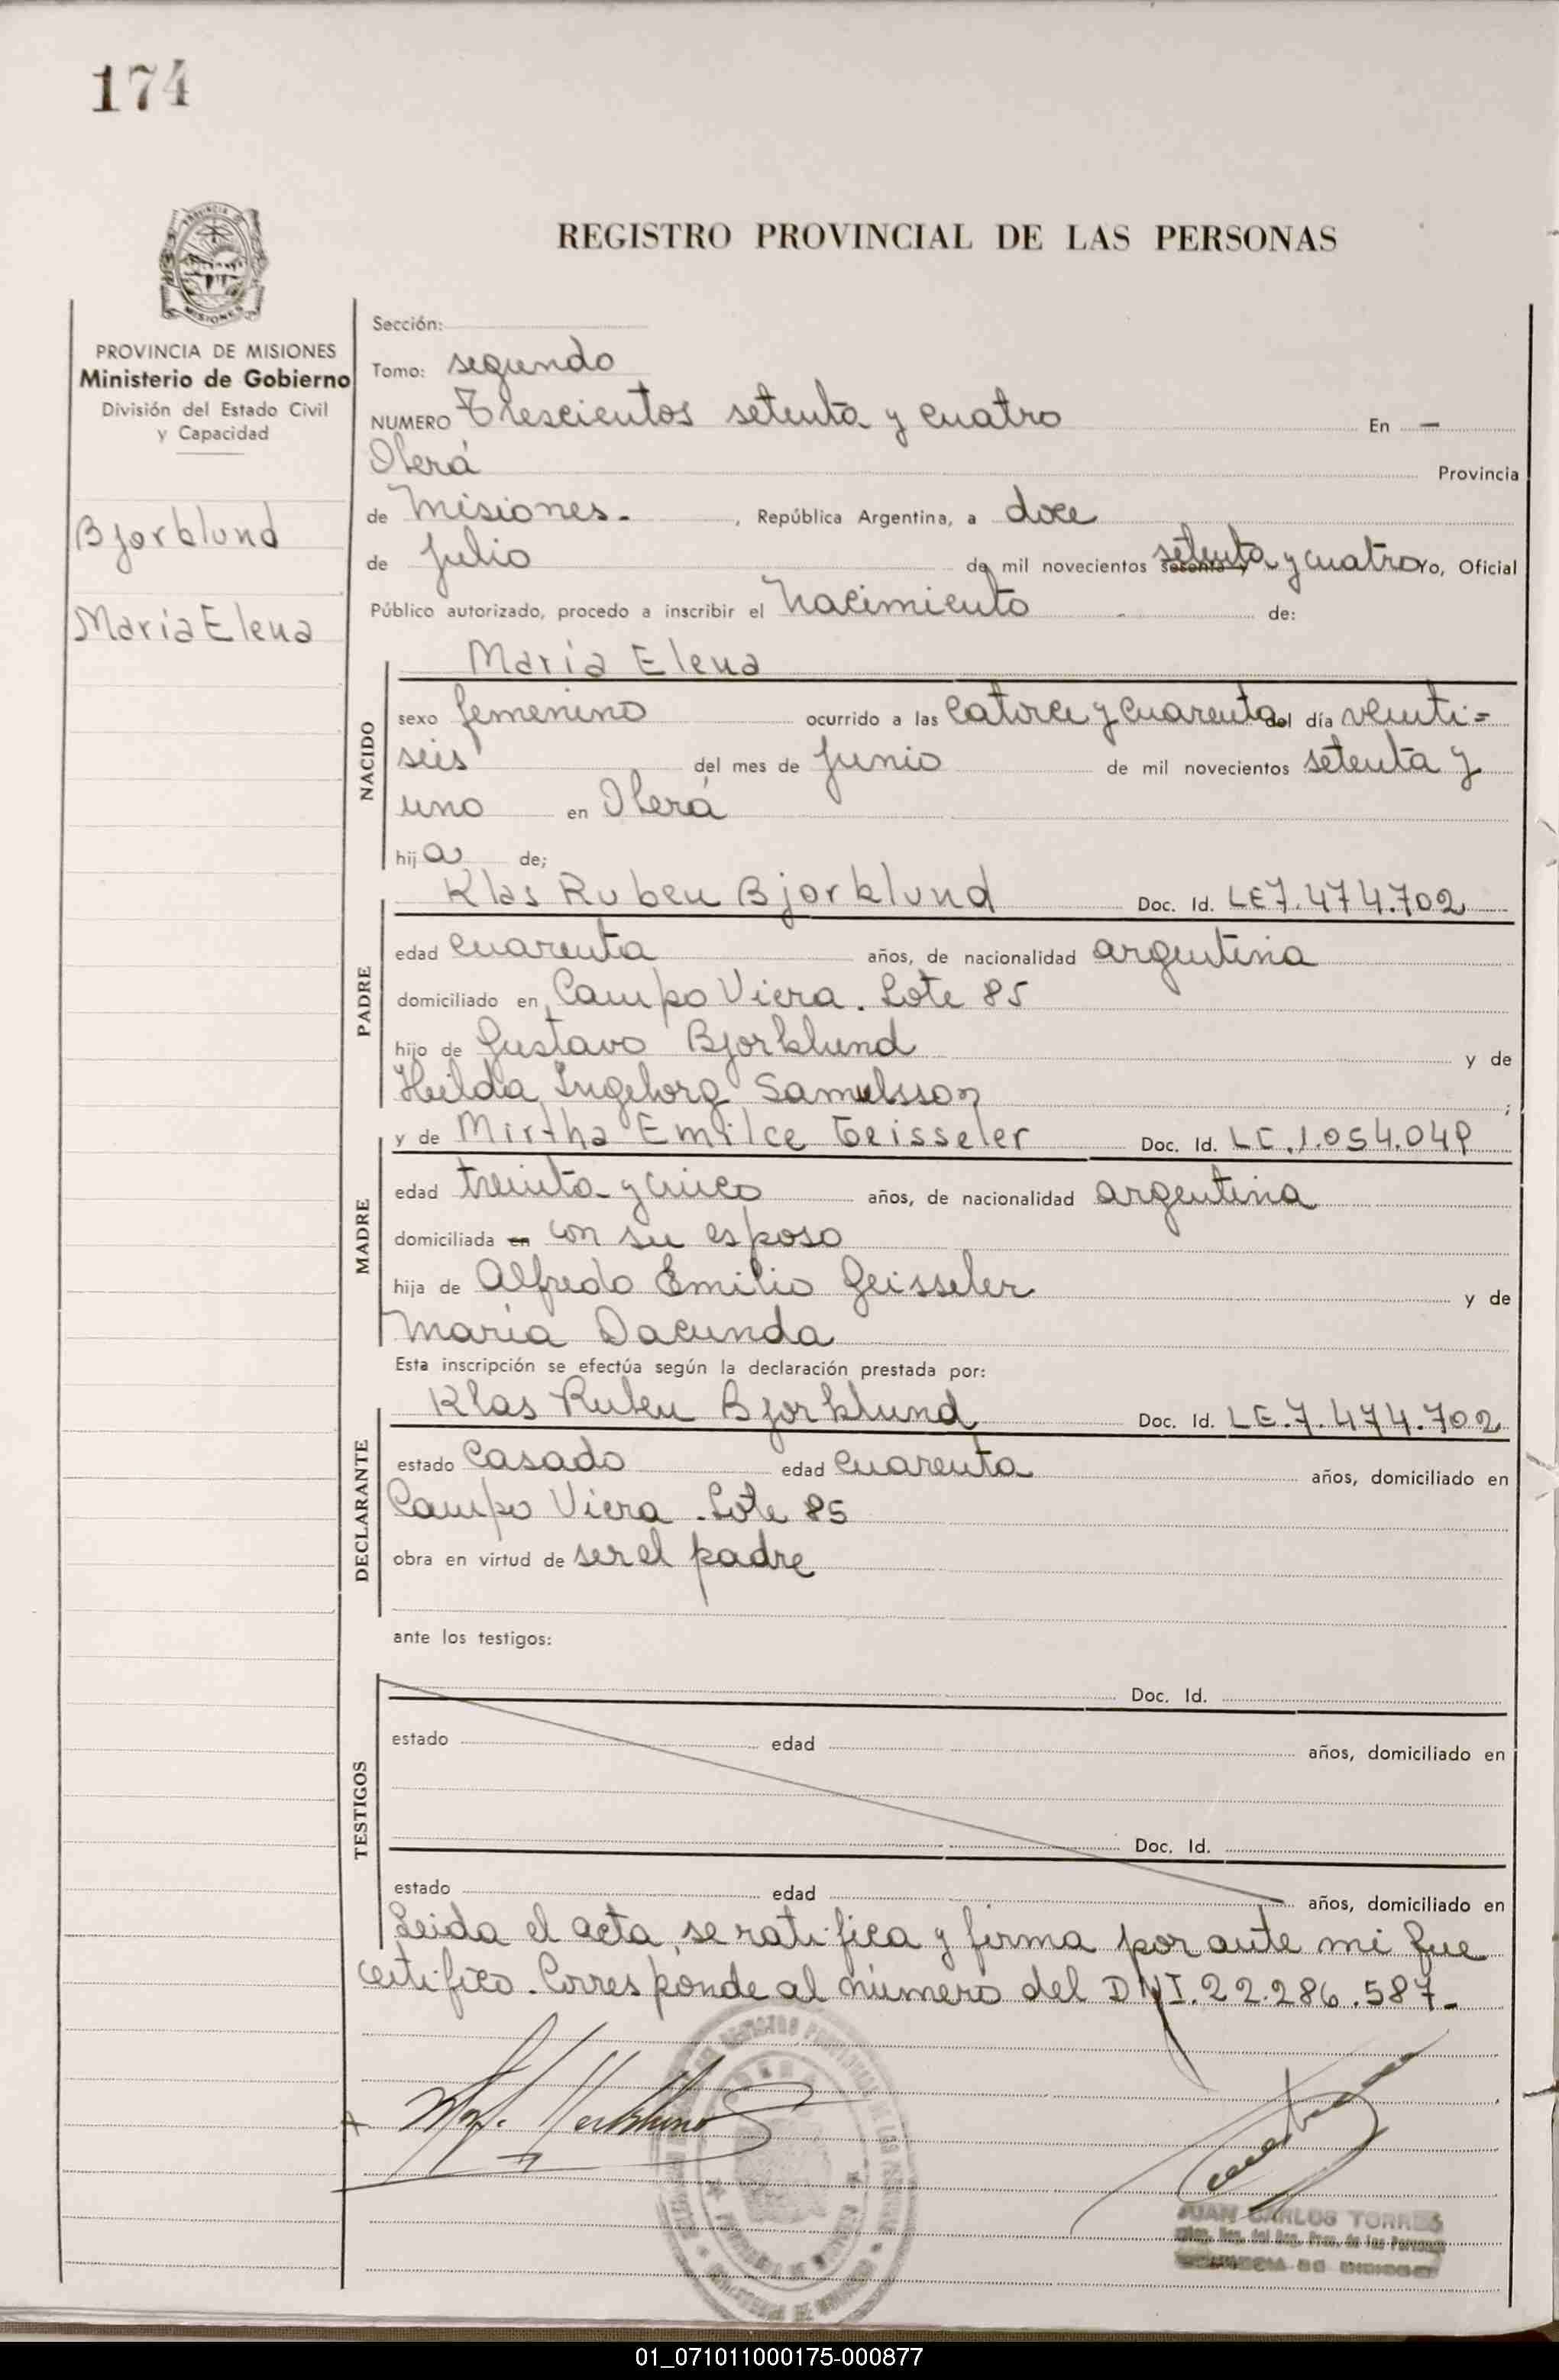 174
REGISTRO PROVINCIAL DE LAS PERSONAS
PROVINCIA DE MISIONES
Ministerio de Gobierno
División del Estado Civil
y Capacidad
Bjorklund
María Elena
Sección:
Tomo: segundo
NUMERO Trescientos setenta y cuatro En -
Oberá Provincia
de Misiones. , República Argentina, a doce
de julio de mil novecientos setenta y cuatro Yo, Oficial
Público autorizado, procedo a inscribir el nacimiento de:
NACIDO
María Elena
sexo femenino ocurrido a las catorce y cuarenta del día veinti=
seis del mes de junio de mil novecientos setenta y
uno en Oberá
hija de;
PADRE
Klas Ruben Bjorklund Doc. Id. LE7.474.702
edad cuarenta años, de nacionalidad argentina
domiciliado en Campo Viera. Lote 85
hijo de Gustavo Bjorklund y de
Hilda Ingeborg Samuelsson ;
MADRE
y de Mirtha Emilce Geisseler Doc. Id. LC.1.054.049
edad treinta y cinco años, de nacionalidad argentina
domiciliada en con su esposo
hija de Alfredo Emilio Geisseler y de
María Dacunda
Esta inscripción se efectúa según la declaración prestada por:
DECLARANTE
Klas Ruben Bjorklund Doc. Id. LE.7.474.702
estado casado edad cuarenta años, domiciliado en
Campo Viera. Lote 85
obra en virtud de ser el padre
ante los testigos:
TESTIGOS
Doc. Id.
estado edad años, domiciliado en
Doc. Id.
estado edad años, domiciliado en
Leida el acta, se ratifica y firma por ante mi que
certifico. Corresponde al número del DNI.22.286.587.
JUAN CARLOS TORRES
PROVINCIA DE MISIONES
01_071011000175-000877